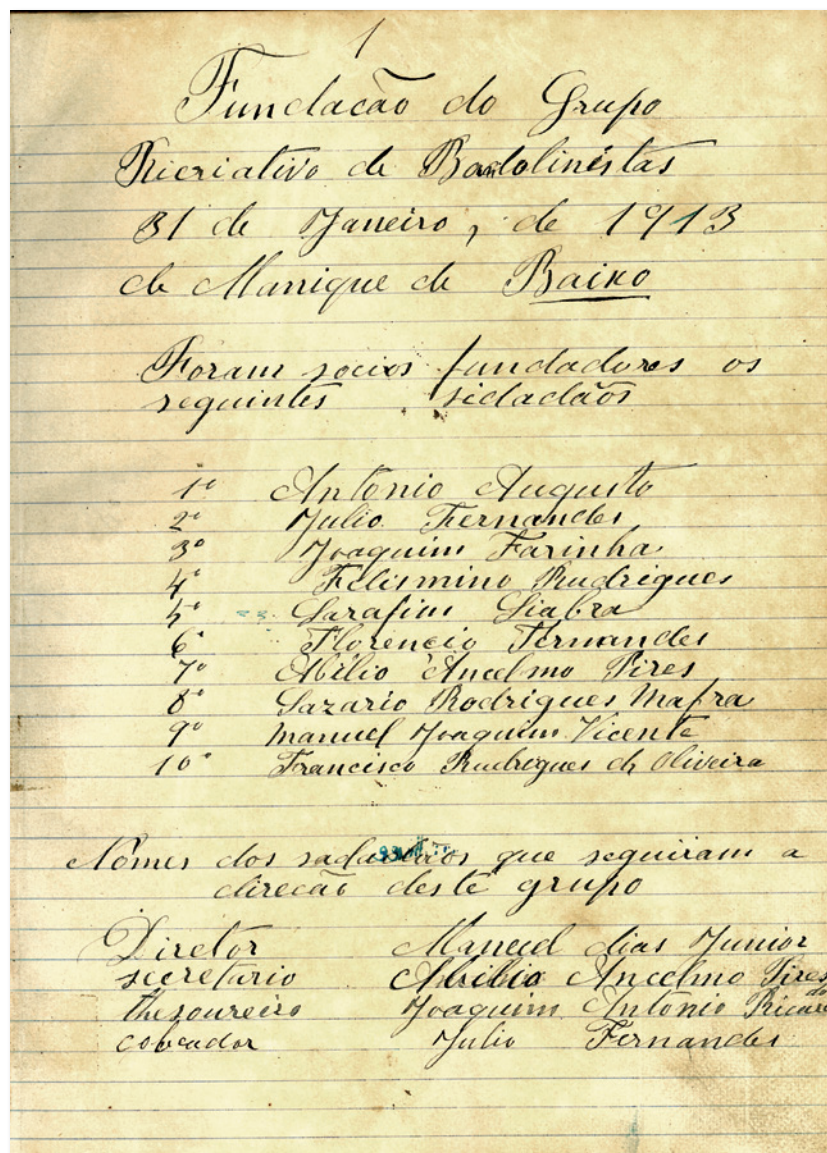 1
Fundacão do Grupo
Ricriativo de Bandolinistas
31 de Janeiro, de 1913
de Manique de Baixo
Foram socios fundadores os
seguintes sidadãos
1º Antonio Augusto
2º Julio Fernandes
3º Joaquim Farinha
4º Felismino Rudrigues
5º Sarafim Siabra
6º Florencio Fernandes
7º Abilio Ancelmo Pires
8º Lazario Rodrigues Mafra
9º Manuel Joaquim Vicente
10º Francisco Rudrigues de Oliveira
Nomes dos que seguiram a
direcão deste grupo
Diretor Manuel dias Junior
secretario Abilio Ancelmo Pires
thesoureiro Joaquim Antonio Ricardo
cobrador Julio Fernandes